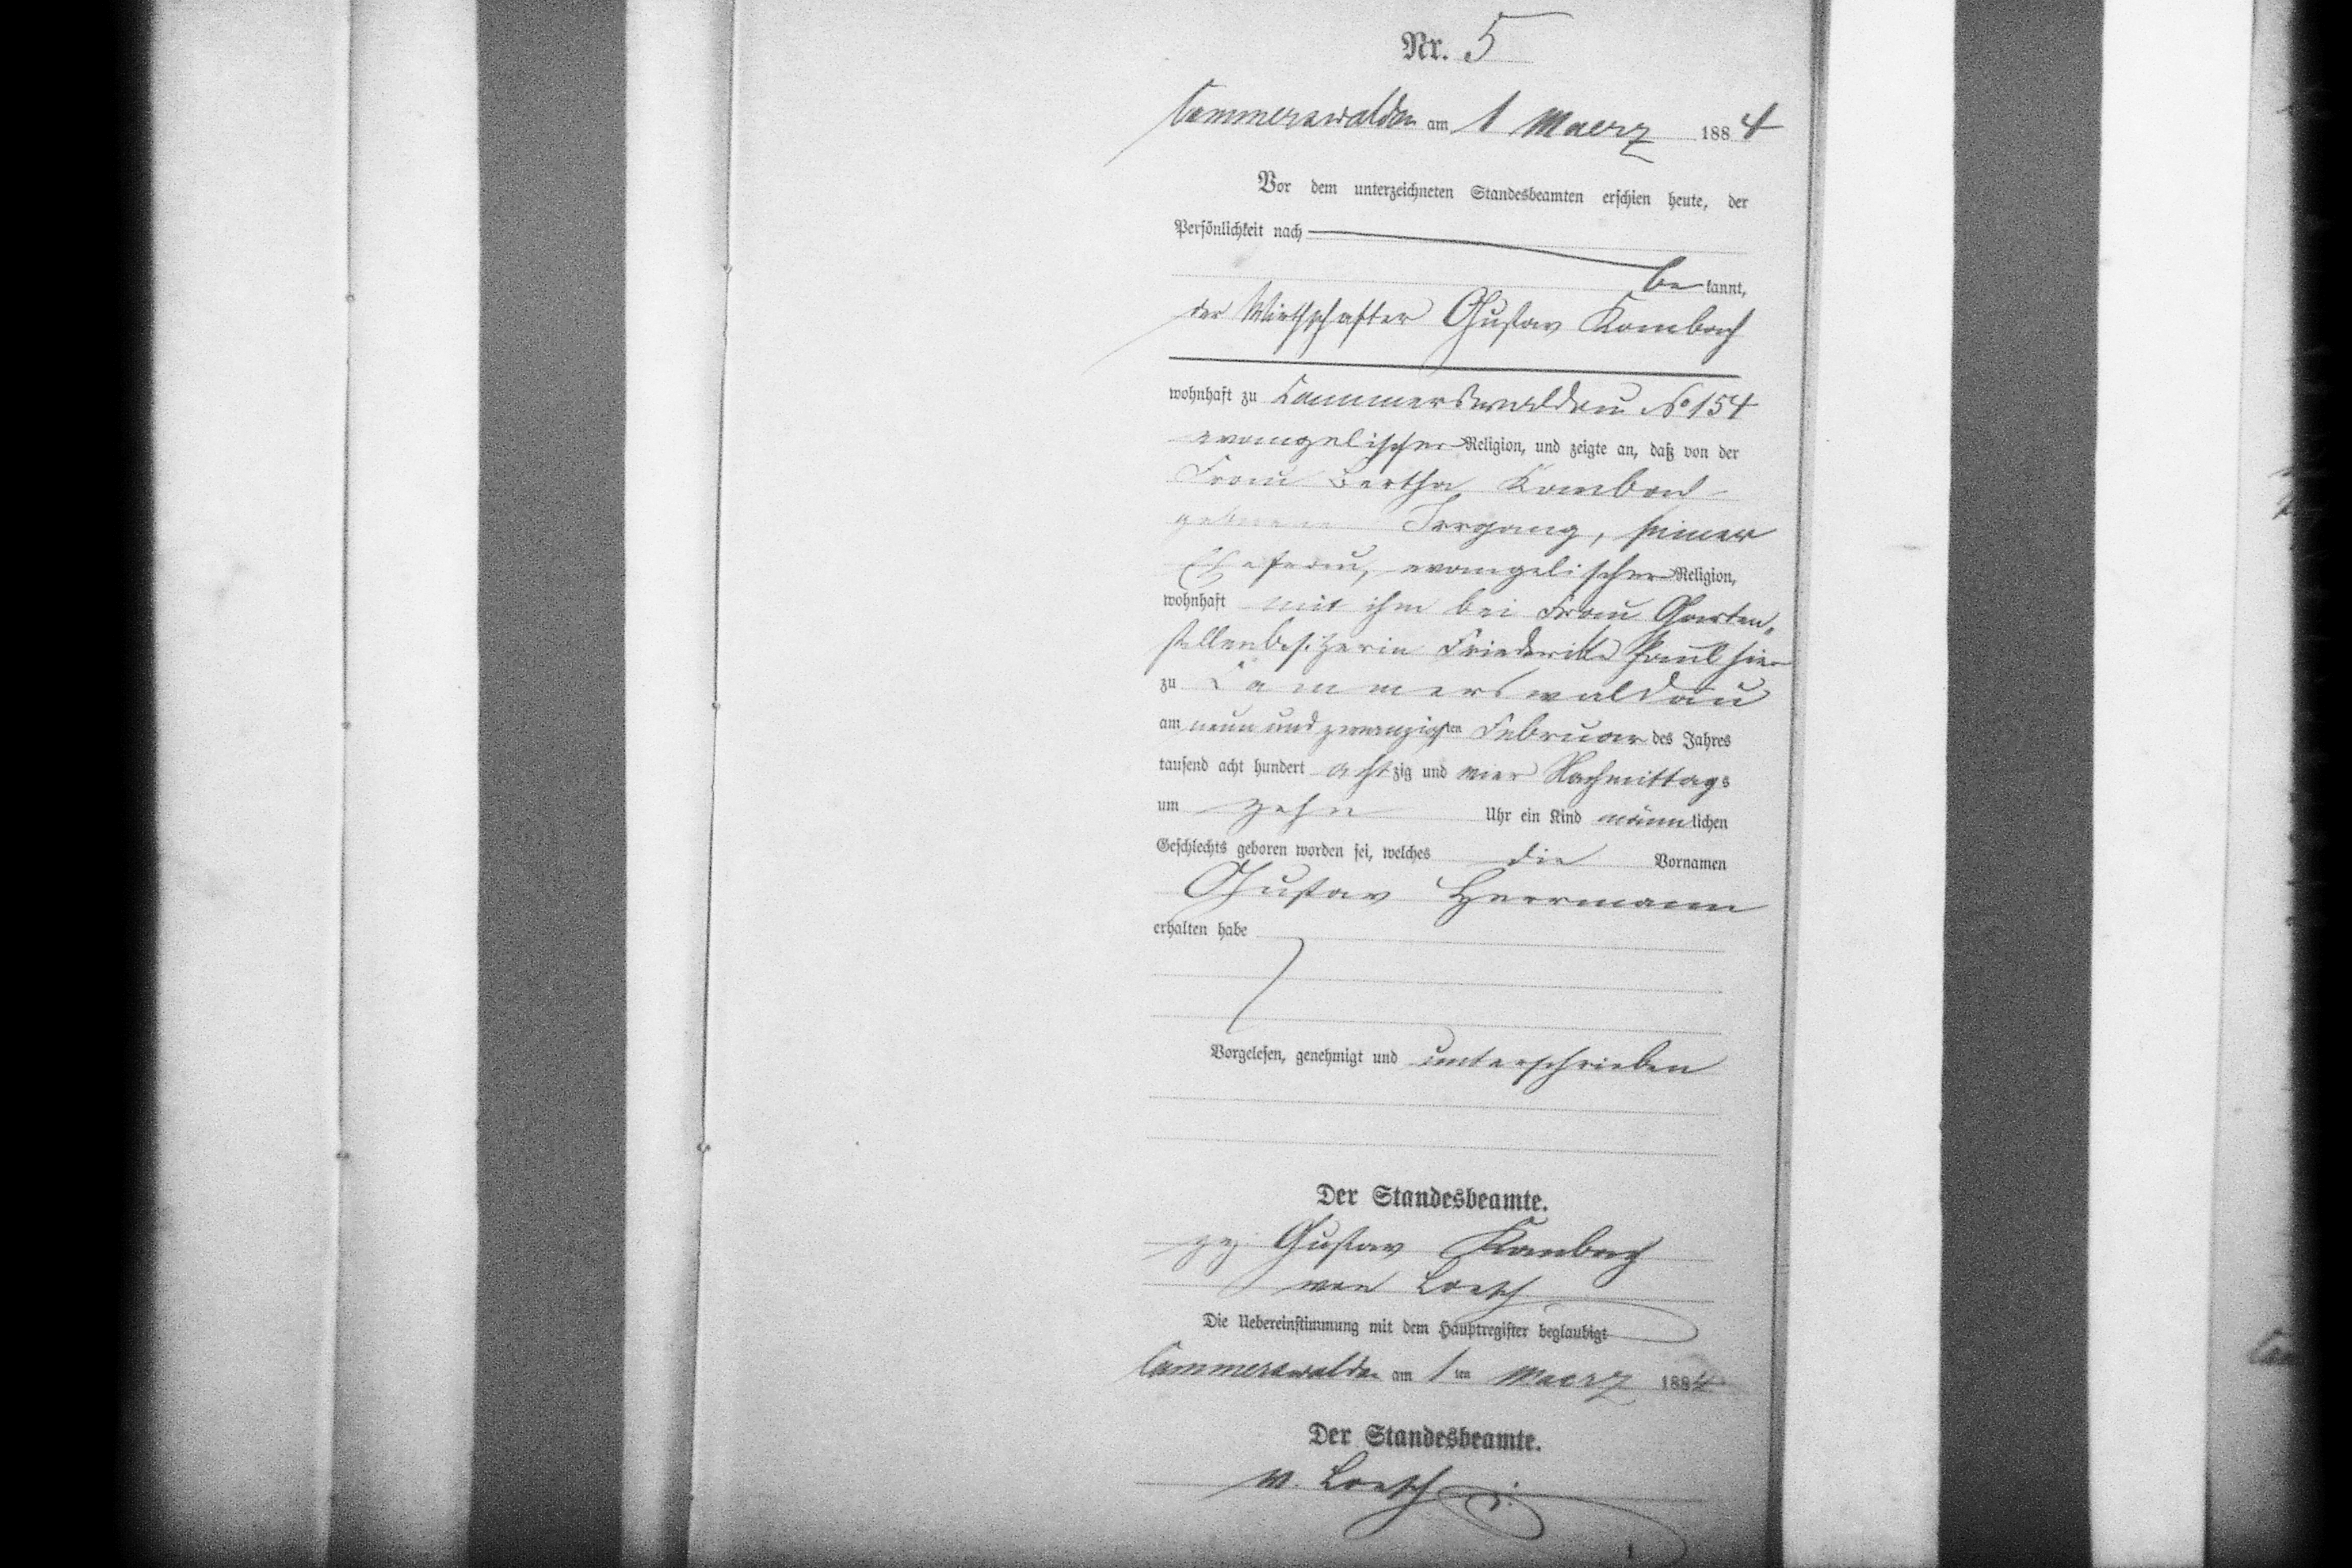 Nr. 5
Cammerswaldau am 1 Maerz 1884
Vor dem unterzeichneten Standesbeamten erschien heute, der
Persönlichkeit nach
be kannt,
der Wirthschafter Gustav Kambach
wohnhaft zu Cammerswaldau No 154
evangelischer Religion, und zeigte an, daß von der
Frau Bertha Kambach
geborene Irrgang, seiner
Ehefrau, evangelischer Religion,
wohnhaft mit ihm bei Frau Garten-
stellenbesitzerin Friederike Paul hier
zu Cammerswaldau
am neun und zwanzigsten Februar des Jahres
tausend acht hundert achtzig und vier Nachmittags
um zehn Uhr ein Kind männlichen
Geschlechts geboren worden sei, welches die Vornamen
Gustav Herrmann
erhalten habe
Vorgelesen, genehmigt und unterschrieben
Der Standesbeamte.
gez. Gustav Kambach
von Loesch
Die Uebereinstimmung mit dem Hauptregister beglaubigt
Cammerswaldau am 1ten Maerz 1884
Der Standesbeamte.
v. Loesch